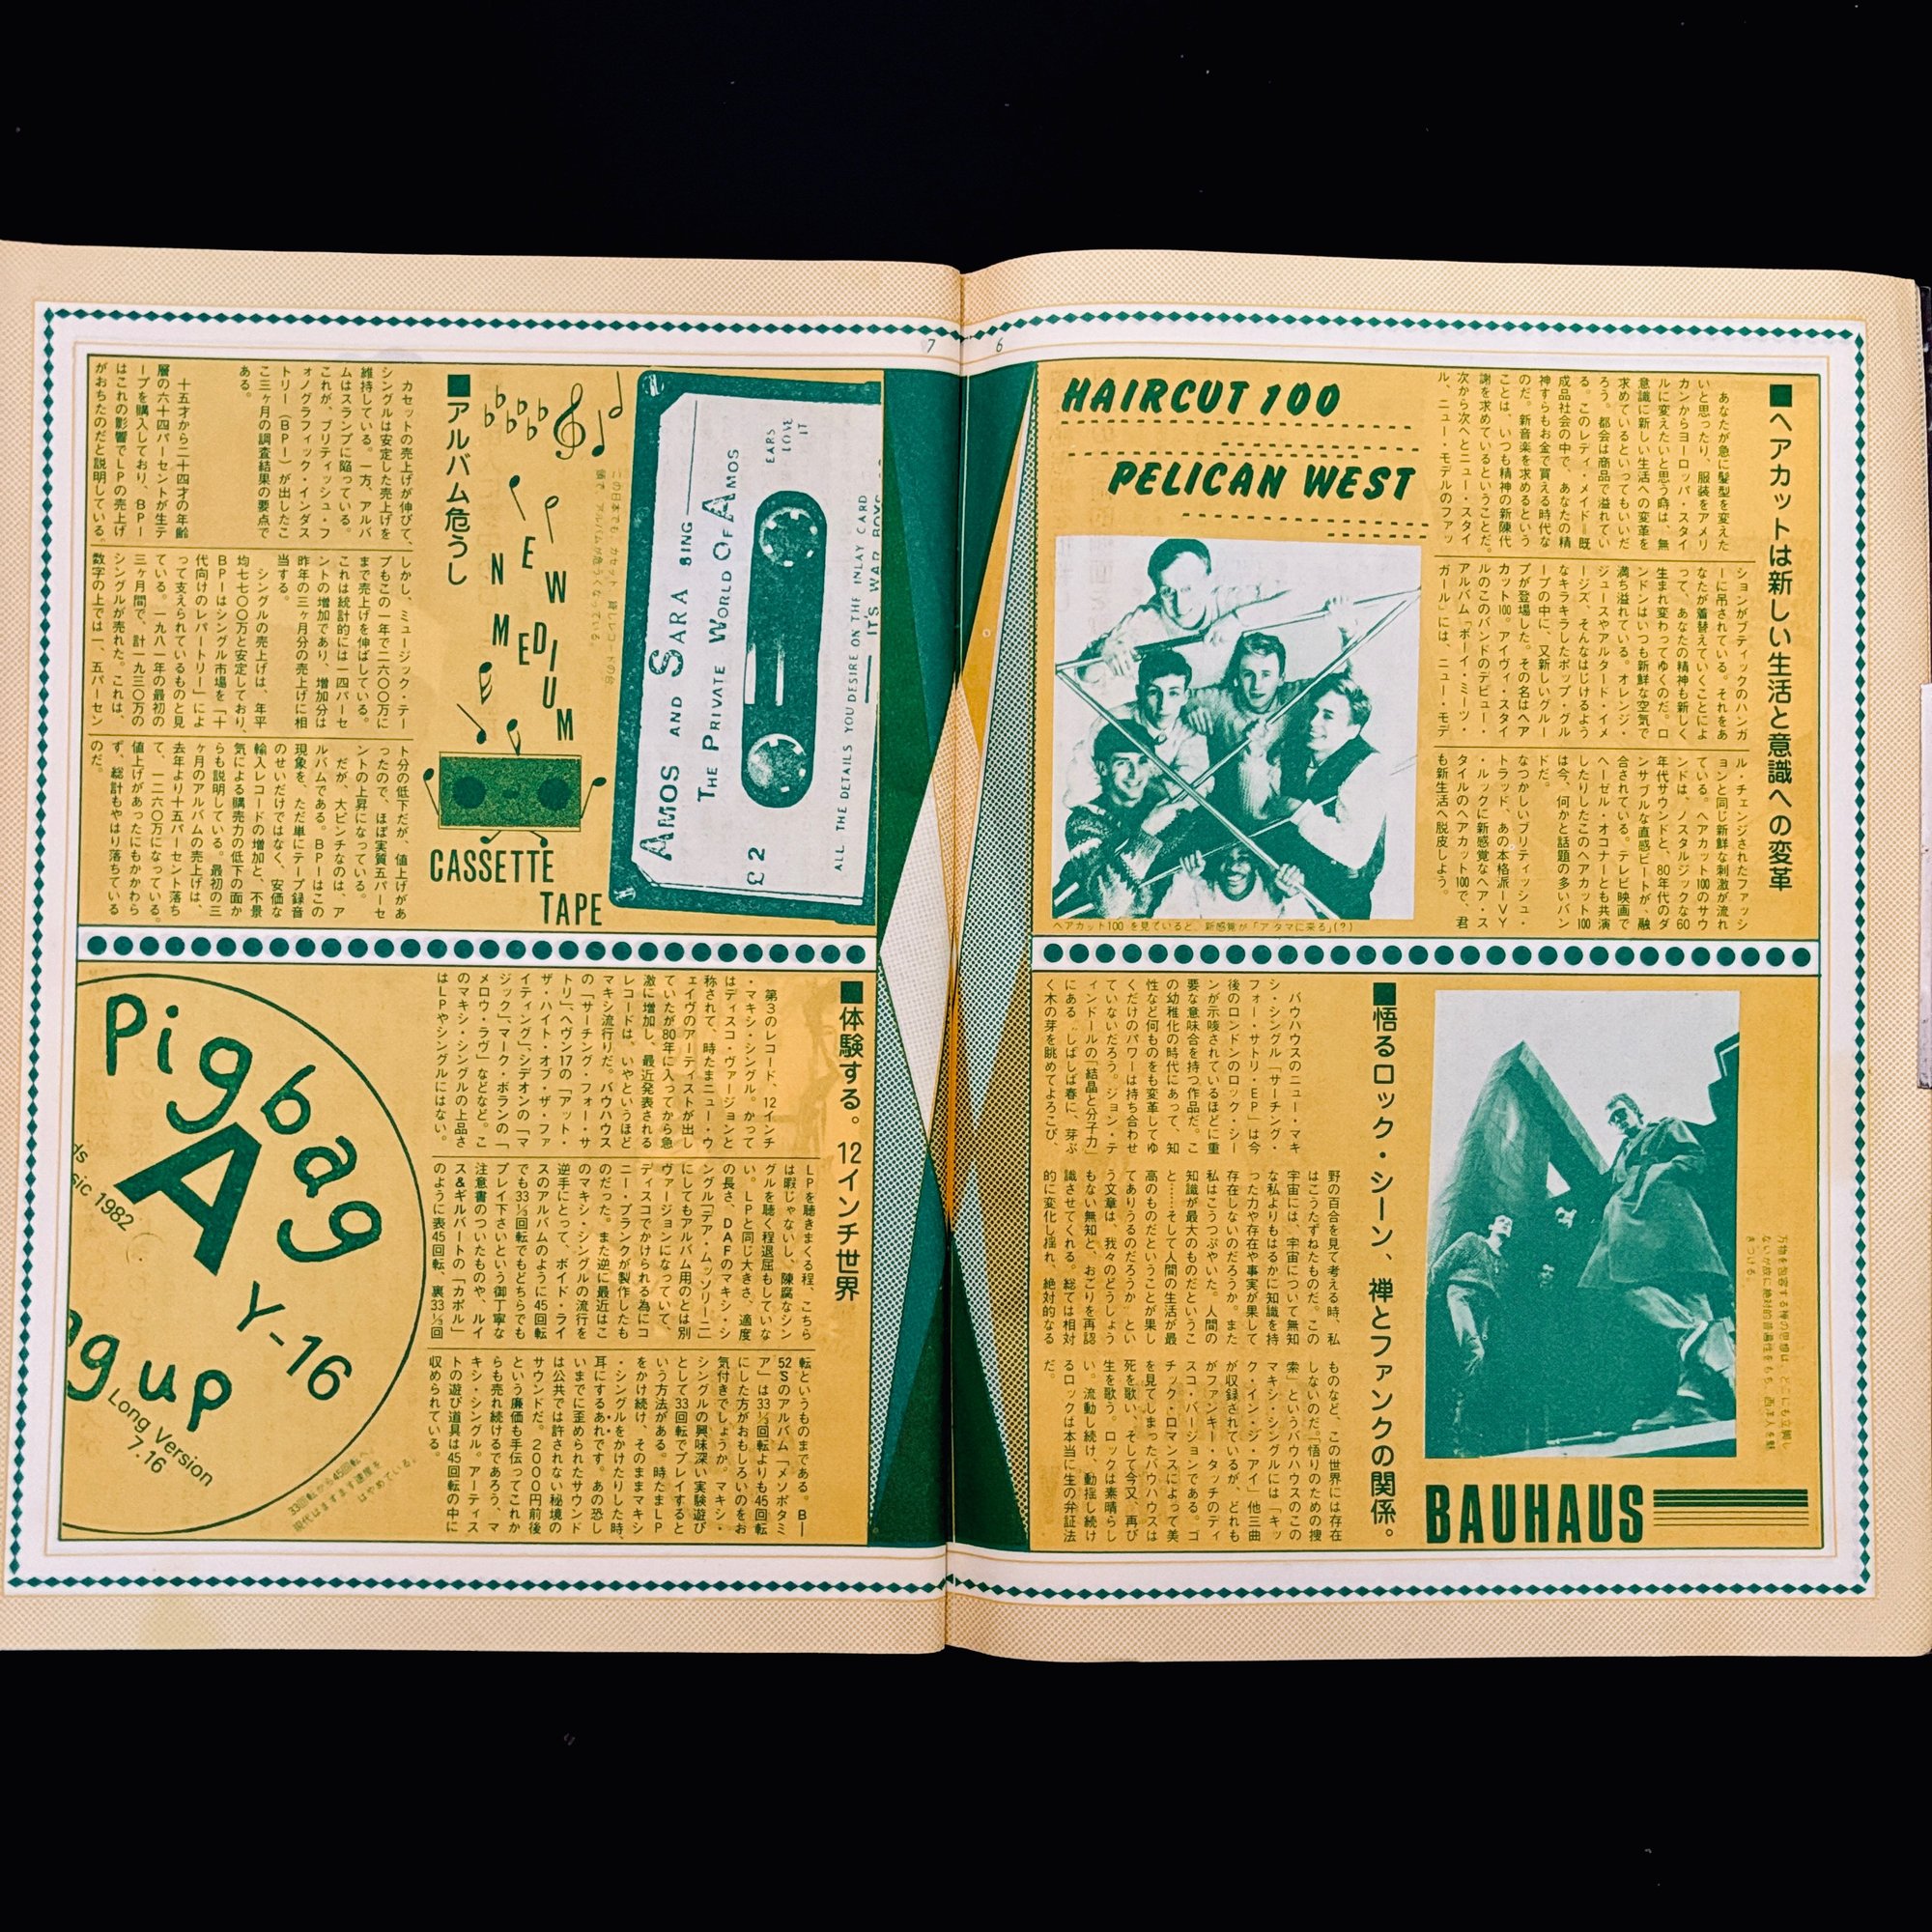 6
HAIRCUT 100
PELICAN WEST
■ヘアカットは新しい生活と意識への変革
あなたが急に髪型を変えた
いと思ったり、服装をアメリ
カンからヨーロッパ・スタイ
ルに変えたいと思う時は、無
意識に新しい生活への変革を
求めているといってもいいだ
ろう。都会は商品で溢れてい
る。このレディ・メイド＝既
成品社会の中で、あなたの精
神すらもお金で買える時代な
のだ。新音楽を求めるという
ことは、いつも精神の新陳代
謝を求めているということだ。
次から次へとニュー・スタイ
ル、ニュー・モデルのファッ
ションがブティックのハンガ
ーに吊されている。それをあ
なたが着替えていくことによ
って、あなたの精神も新しく
生まれ変わってゆくのだ。ロ
ンドンはいつも新鮮な空気で
満ち溢れている。オレンジ・
ジュースやアルタード・イメ
ージズ、そんなはじけるよう
なキラキラしたポップ・グル
ープの中に、又新しいグルー
プが登場した。その名はヘア
カット100。アイヴィ・スタイ
ルのこのバンドのデビュー・
アルバム「ボーイ・ミーツ・
ガール」には、ニュー・モデ
ル・チェンジされたファッシ
ョンと同じ新鮮な刺激が流れ
ている。ヘアカット100のサウ
ンドは、ノスタルジックな60
年代サウンドと、80年代のダ
ンサブルな直感ビートが、融
合されている。テレビ映画で
ヘーゼル・オコナーとも共演
したりしたこのヘアカット100
は今、何かと話題の多いバン
ドだ。
なつかしいブリティッシュ・
トラッド、あの本格派ＩＶＹ
・ルックに新感覚なヘア・ス
タイルのヘアカット100で、君
も新生活へ脱皮しよう。
ヘアカット100 を見ていると、新感覚が「アタマに来る」(？)
BAUHAUS
■悟るロック・シーン、禅とファンクの関係。
バウハウスのニュー・マキ
シ・シングル「サーチング・
フォー・サトリ・ＥＰ」は今
後のロンドンのロック・シー
ンが示唆されているほどに重
要な意味合を持つ作品だ。こ
の幼稚化の時代にあって、知
性など何ものをも変革してゆ
くだけのパワーは持ち合わせ
ていないだろう。ジョン・テ
ィンドールの「結晶と分子力」
にある、しばしば春に、芽ぶ
く木の芽を眺めてよろこび、
野の百合を見て考える時、私
はこうたずねたものだ。この
宇宙には、宇宙について無知
な私よりもはるかに知識を持
った力や存在や事実が果して
存在しないのだろうか。また
私はこうつぶやいた。人間の
知識が最大のものだというこ
と……そして人間の生活が最
高のものだということが果し
てありうるのだろうか―とい
う文章は、我々のどうしよう
もない無知と、おごりを再認
識させてくれる。総ては相対
的に変化し揺れ、絶対的なる
ものなど、この世界には存在
しないのだ。「悟りのための捜
索」というバウハウスのこの
マキシ・シングルには「キッ
ク・イン・ジ・アイ」他三曲
が収録されているが、どれも
がファンキー・タッチのディ
スコ・バージョンである。ゴ
チック・ロマンスによって美
を見てしまったバウハウスは
死を歌い、そして今又、再び
生を歌う。ロックは素晴らし
い。流動し続け、動揺し続け
るロックは本当に生の弁証法
だ。
7
AMOS AND SARA SING
THE PRIVATE WORLD OF AMOS
EARS
LOVE
IT
£2
ALL THE DETAILS YOU DESIRE ON THE INLAY CARD
IT'S WAR BOYS
NEW
MEDIUM
CASSETTE
TAPE
■アルバム危うし
カセットの売上げが伸びて、
シングルは安定した売上げを
維持している。一方、アルバ
ムはスランプに陥っている。
これが、ブリティッシュ・フ
ォノグラフィック・インダス
トリー（ＢＰＩ）が出したこ
こ三ヶ月の調査結果の要点で
ある。
十五才から二十四才の年齢
層の六十四パーセントが生テ
ープを購入しており、ＢＰＩ
はこれの影響でＬＰの売上げ
がおちたのだと説明している。
しかし、ミュージック・テー
プもこの一年で二六〇〇万に
まで売上げを伸ばしている。
これは統計的には一四パーセ
ントの増加であり、増加分は
昨年の三ヶ月分の売上げに相
当する。
シングルの売上げは、年平
均七七〇〇万と安定しており、
ＢＰＩはシングル市場を「十
代向けのレパートリー」によ
って支えられているものと見
ている。一九八一年の最初の
三ヶ月間で、計一九三〇万の
シングルが売れた。これは、
数字の上では一、五パーセン
ト分の低下だが、値上げがあ
ったので、ほぼ実質五パーセ
ントの上昇になっている。
だが、大ピンチなのは、ア
ルバムである。ＢＰＩはこの
現象を、ただ単にテープ録音
のせいだけではなく、安価な
輸入レコードの増加と、不景
気による購売力の低下の面か
らも説明している。最初の三
ヶ月のアルバムの売上げは、
去年より十五パーセント落ち
て、一二六〇万になっている。
値上げがあったにもかかわら
ず、総計もやはり落ちている
のだ。
■体験する。12インチ世界
第３のレコード、12インチ
・マキシ・シングル。かって
はディスコ・ヴァージョンと
称されて、時たまニュー・ウ
ェイヴのアーティストが出し
ていたが80年に入ってから急
激に増加し、最近発表される
レコードは、いやというほど
マキシ流行りだ。バウハウス
の「サーチング・フォー・サ
トリ」、ヘヴン17の「アット・
ザ・ハイト・オブ・ザ・ファ
イティング」、シデオンの「マ
ジック」、マーク・ボランの「
メロウ・ラヴ」などなど。こ
のマキシ・シングルの上品さ
はＬＰやシングルにはない。
ＬＰを聴きまくる程、こちら
は暇じゃないし、陳腐なシン
グルを聴く程退屈もしていな
い。ＬＰと同じ大きさ、適度
の長さ、ＤＡＦのマキシ・シ
ングル「デア・ムッソリーニ」
にしてもアルバム用のとは別
ヴァージョンになっていて、
ディスコでかけられる為にコ
ニー・プランクが製作したも
のだった。また逆に最近はこ
のマキシ・シングルの流行を
逆手にとって、ボイド・ライ
スのアルバムのように45回転
でも33⅓回転でもどちらでも
プレイ下さいという御丁寧な
注意書のついたものや、ルイ
ス＆ギルバートの「カポル」
のように表45回転、裏33⅓回
転というものまである。Ｂ―
52'Sのアルバム「メソポタミ
ア」は33⅓回転よりも45回転
にした方がおもしろいのをお
気付きでしょうか。マキシ・
シングルの興味深い実験遊び
として33回転でプレイすると
いう方法がある。時たまＬＰ
をかけ続け、そのままマキシ
・シングルをかけたりした時、
耳にするあれです。あの恐し
いまでに歪められたサウンド
は公共では許されない秘境の
サウンドだ。２０００円前後
という廉価も手伝ってこれか
らも売れ続けるであろう、マ
キシ・シングル。アーティス
トの遊び道具は45回転の中に
収められている。
Pigbag
A
Y-16
sic 1982
g up
Long Version
7.16
33回転から45回転へ
現代はますます速度を
はやめている。